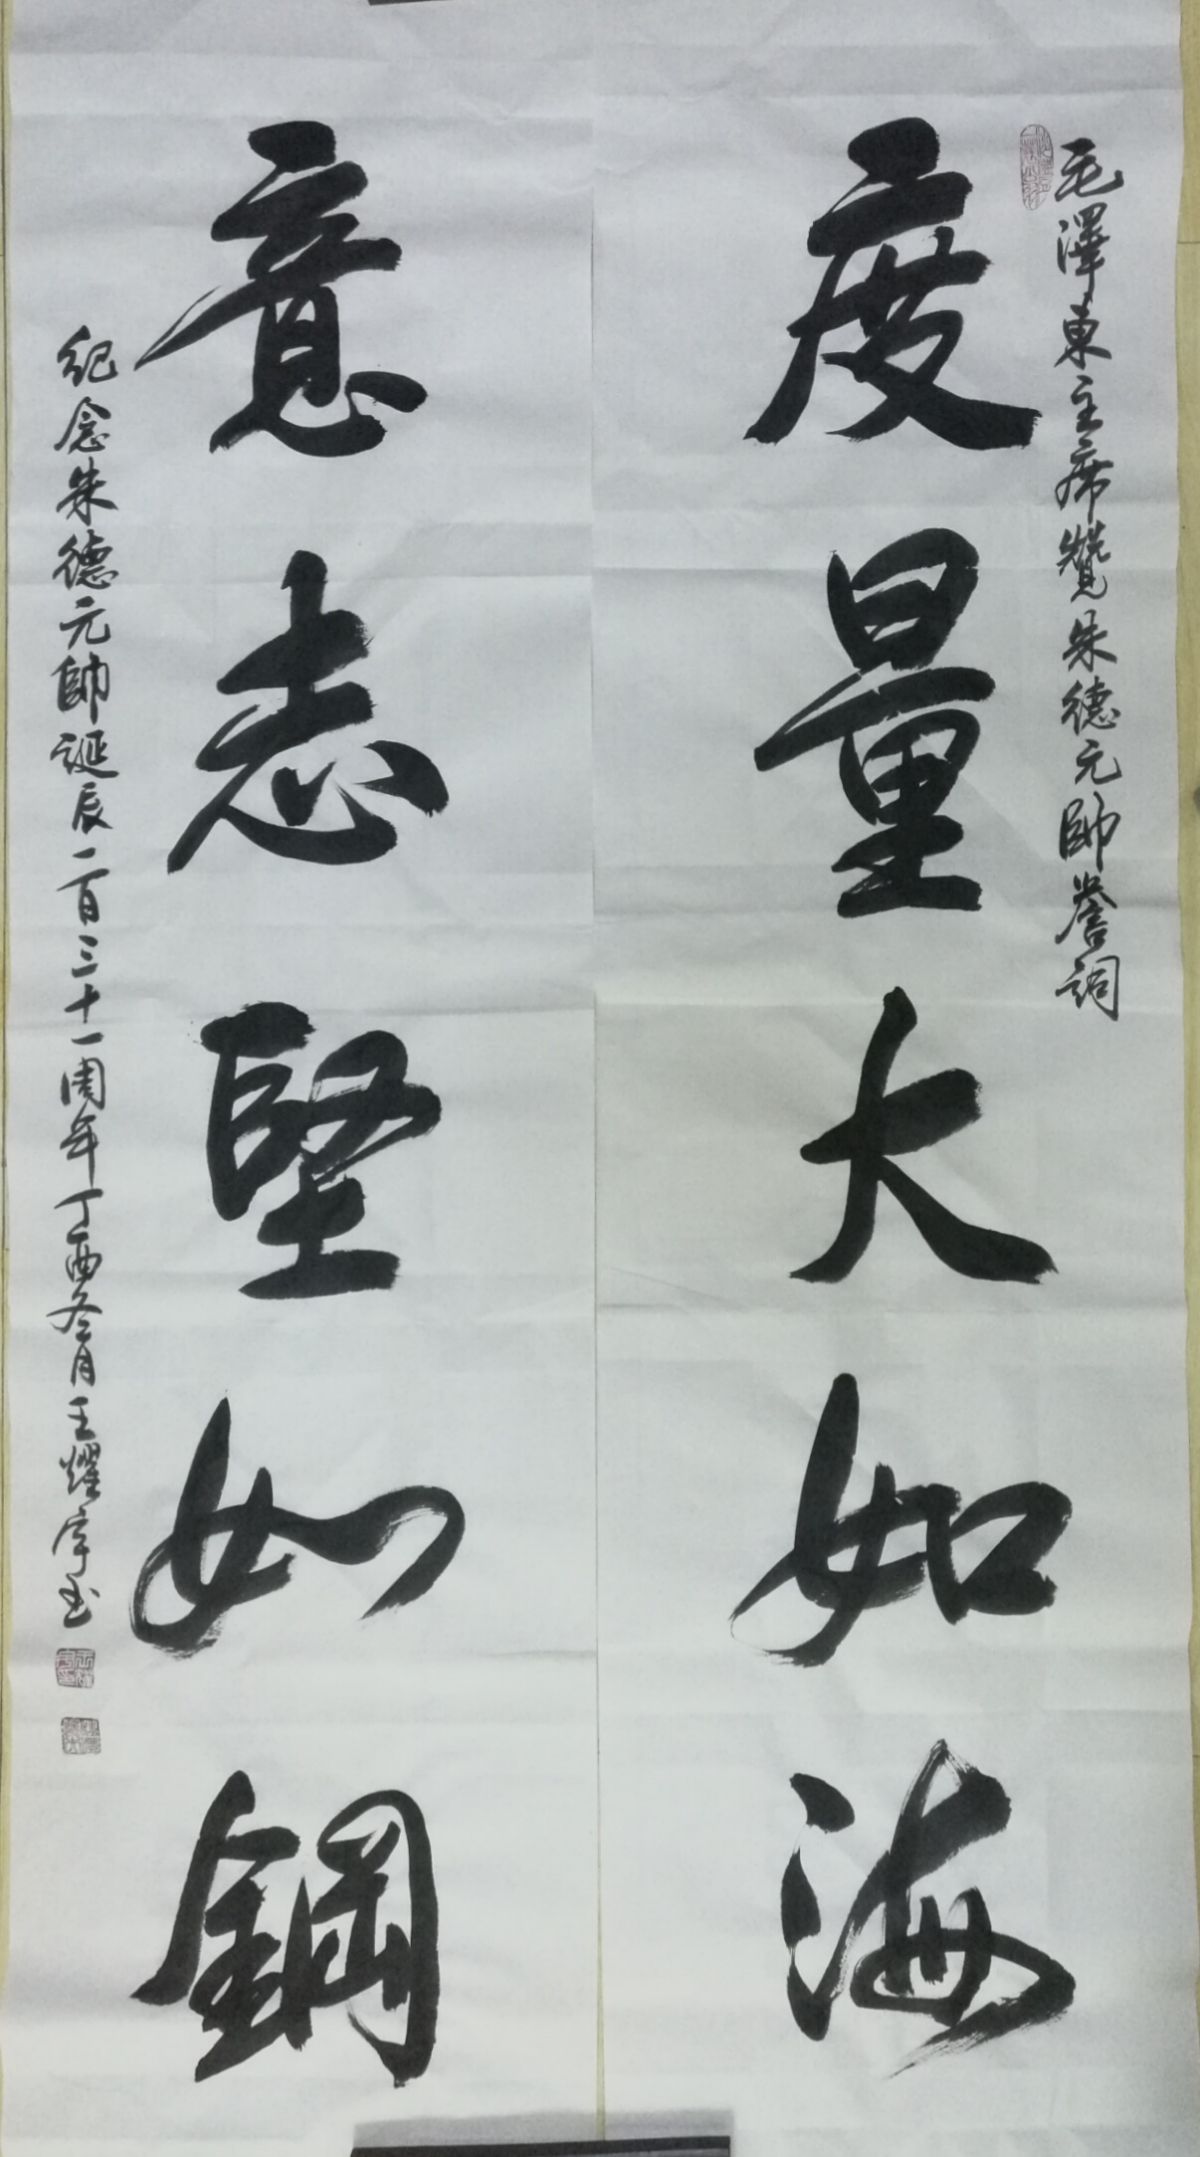 毛澤東主席贊朱德元帥譽詞
度量大如海
意志堅如鋼
紀念朱德元帥誕辰一百三十一周年丁酉冬月王耀宇书